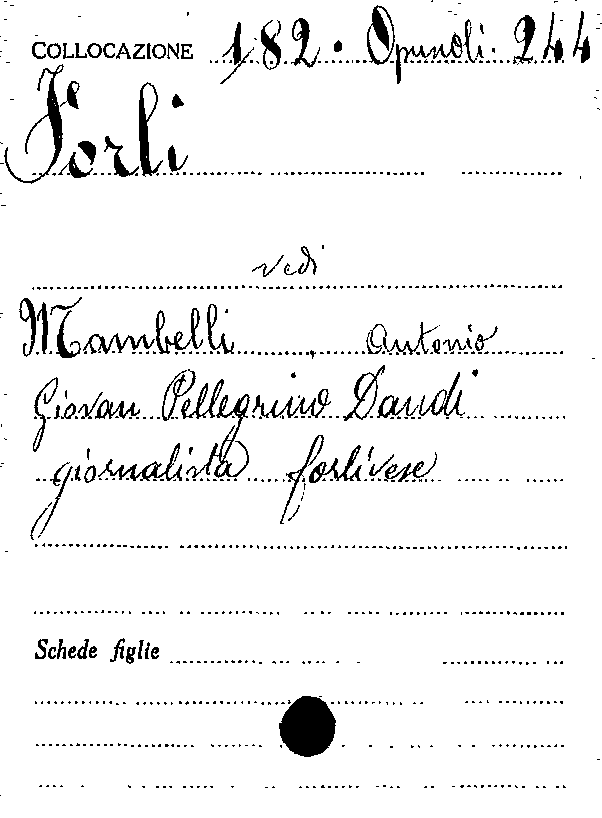 COLLOCAZIONE 182 . Opuscoli. 244
Forlì
vedi
Mambelli , Antonio
Giovan Pellegrino Dandi
giornalista forlivese
Schede figlie